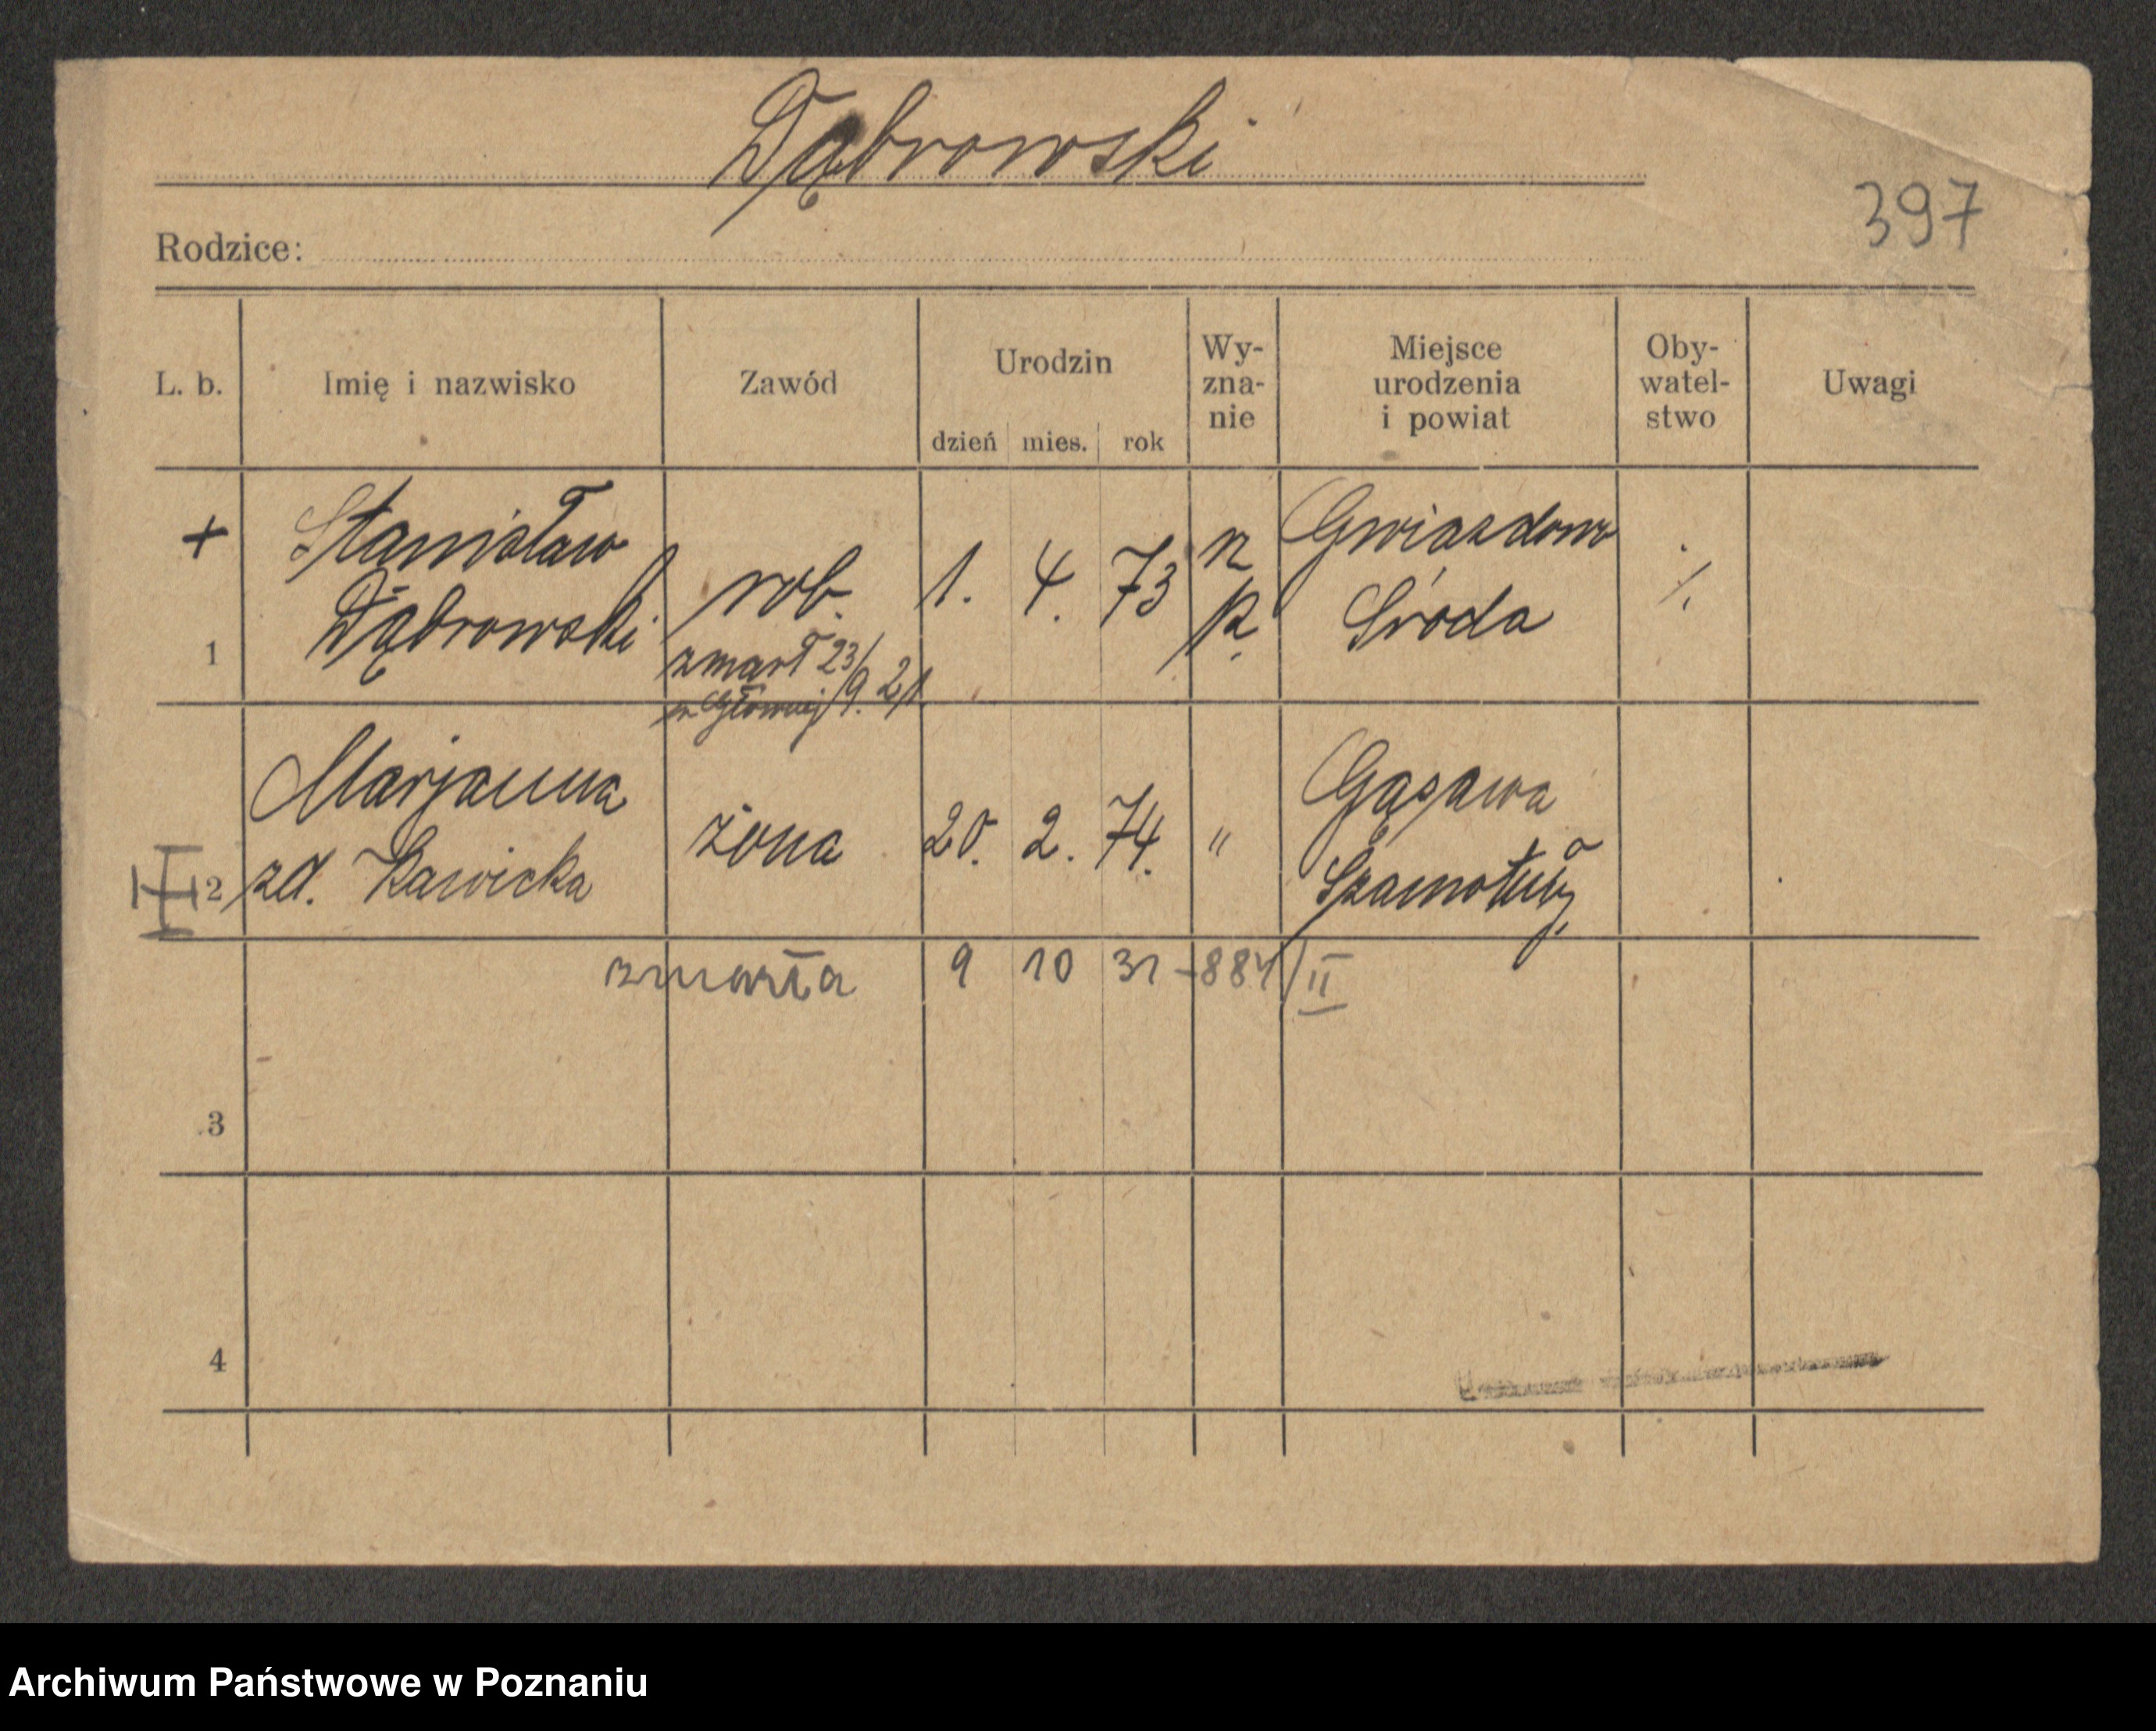 Dąbrowski
397
Rodzice:
L. b.
Imię i nazwisko
Zawód
Urodzin
dzień mies. rok
Wy-
zna-
nie
Miejsce
urodzenia
i powiat
Oby-
watel-
stwo
Uwagi
+
1
Stanisław
Dąbrowski
rob.
zmarł 23/9. 21
w Głównej
1. 4. 73
rz
k.
Gwiazdowo
Środa
./.
2
Marjanna
zd. Kawicka
żona
20. 2. 74.
"
Gąsawa
Szamotuły
zmarła 9 10 31 - 884/II
3
4
Archiwum Państwowe w Poznaniu